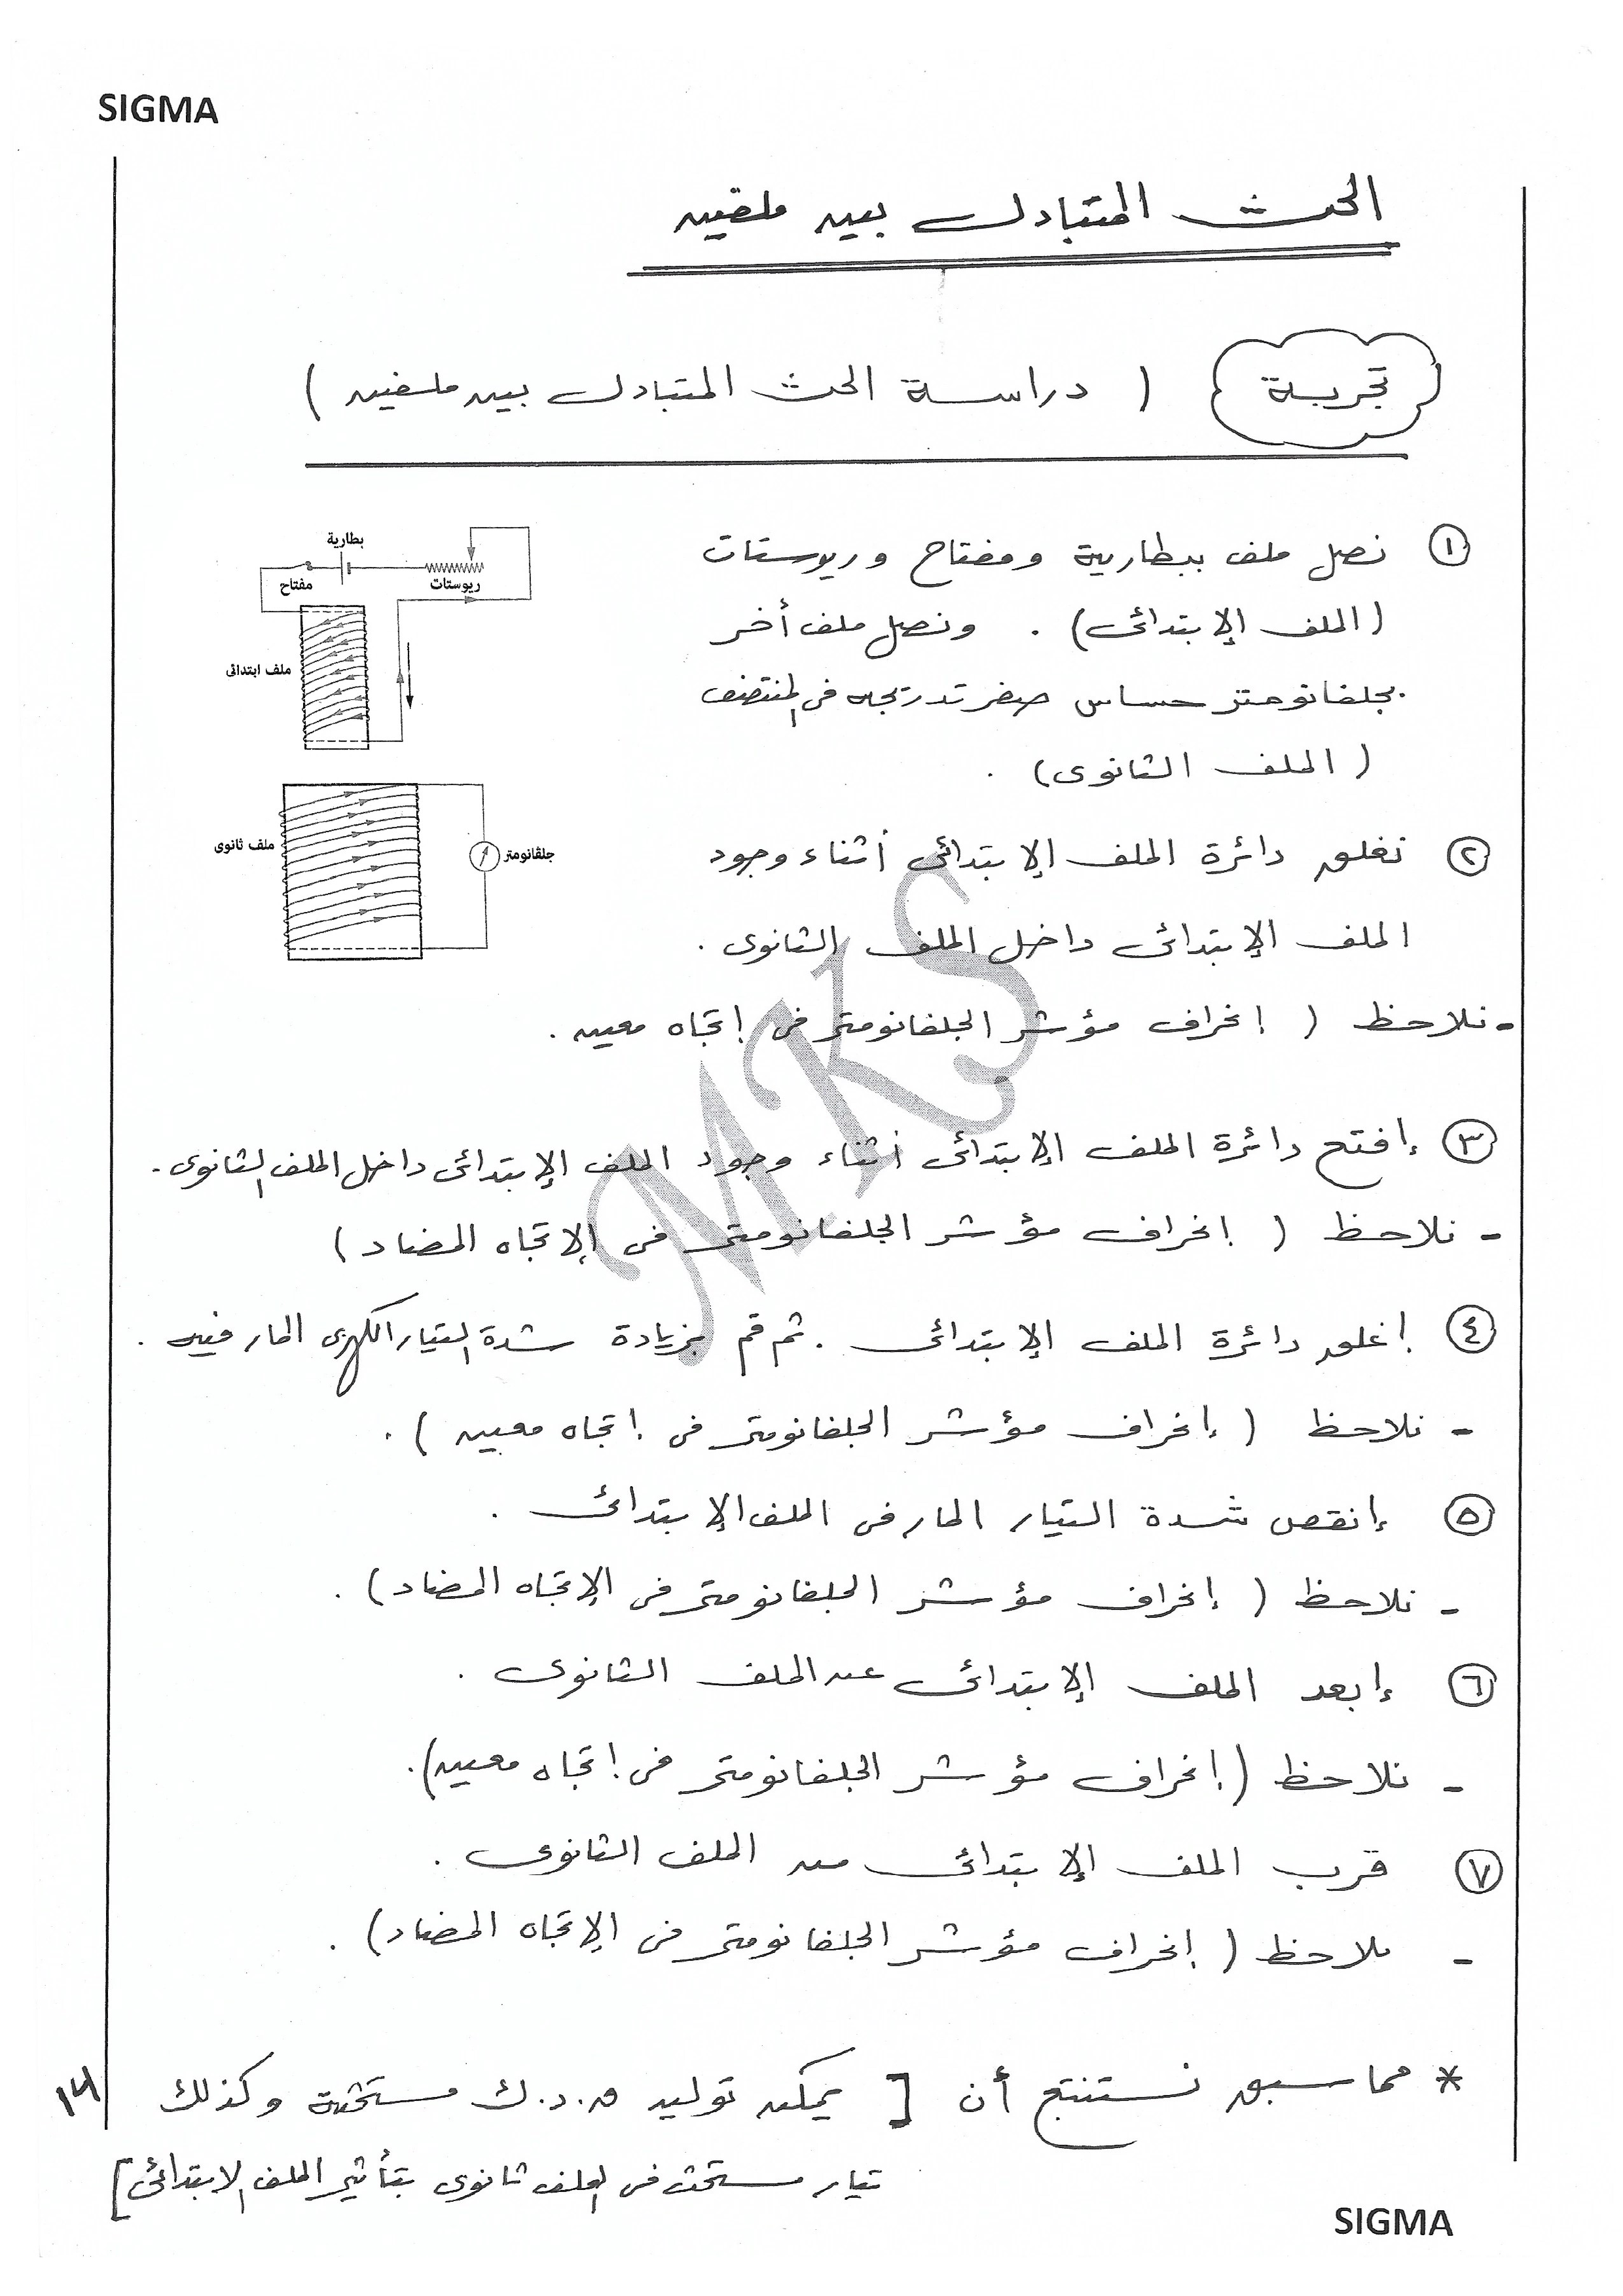 SIGMA
الحث المتبادل بين ملفين
تجربة ( دراسة الحث المتبادل بين ملفين )
١ نصل ملف ببطارية ومفتاح وريوستات
(الملف الإبتدائى) . ونصل ملف أخر
بجلفانومتر حساس صفر تدريجه فى المنتصف
( الملف الثانوى) .
بطارية
مفتاح
ريوستات
ملف ابتدائى
ملف ثانوى
جلفانومتر
٢ نغلق دائرة الملف الإبتدائى أثناء وجود
الملف الإبتدائى داخل الملف الثانوى .
- نلاحظ ( إنحراف مؤشر الجلفانومتر فى إتجاه معين .
٣ إفتح دائرة الملف الإبتدائى أثناء وجود الملف الإبتدائى داخل الملف الثانوى .
- نلاحظ ( إنحراف مؤشر الجلفانومتر فى الإتجاه المضاد )
٤ إغلق دائرة الملف الإبتدائى . ثم قم بزيادة شدة التيار الكهربى المار فيه .
- نلاحظ ( إنحراف مؤشر الجلفانومتر فى إتجاه معين ) .
٥ إنقص شدة التيار المار فى الملف الإبتدائى .
- نلاحظ ( إنحراف مؤشر الجلفانومتر فى الإتجاه المضاد) .
٦ إبعد الملف الإبتدائى عن الملف الثانوى .
- نلاحظ (إنحراف مؤشر الجلفانومتر فى إتجاه معين).
٧ قرب الملف الإبتدائى من الملف الثانوى .
- نلاحظ ( إنحراف مؤشر الجلفانومتر فى الإتجاه المضاد) .
* مما سبق نستنتج أن [ يمكن توليد ق.د.ك مستحثة وكذلك
تيار مستحث فى ملف ثانوى بتأثير الملف الابتدائى ]
١٤
SIGMA
MKS